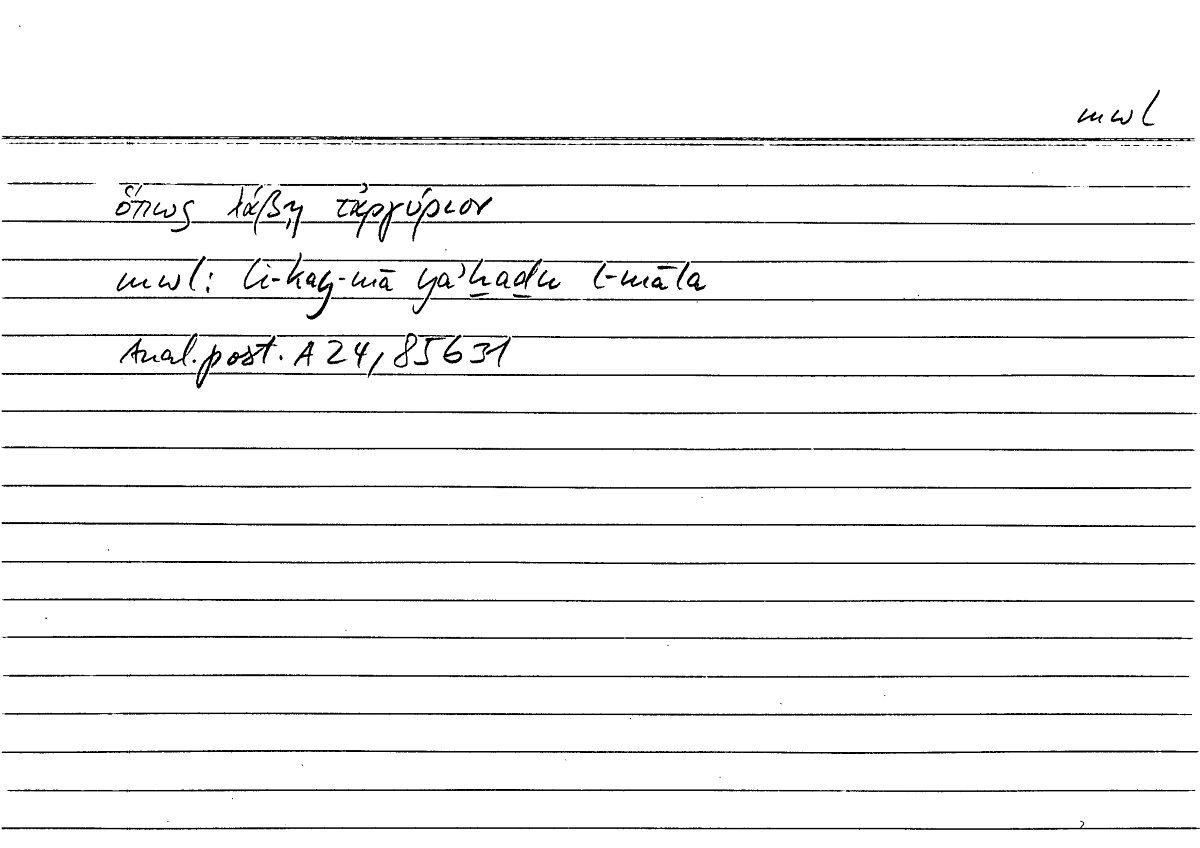 mwl
ὅπως λάβῃ τἀργύριον
mwl: li-kay-mā ya’ḫaḏu l-māla
Anal. post. A 24, 85b31